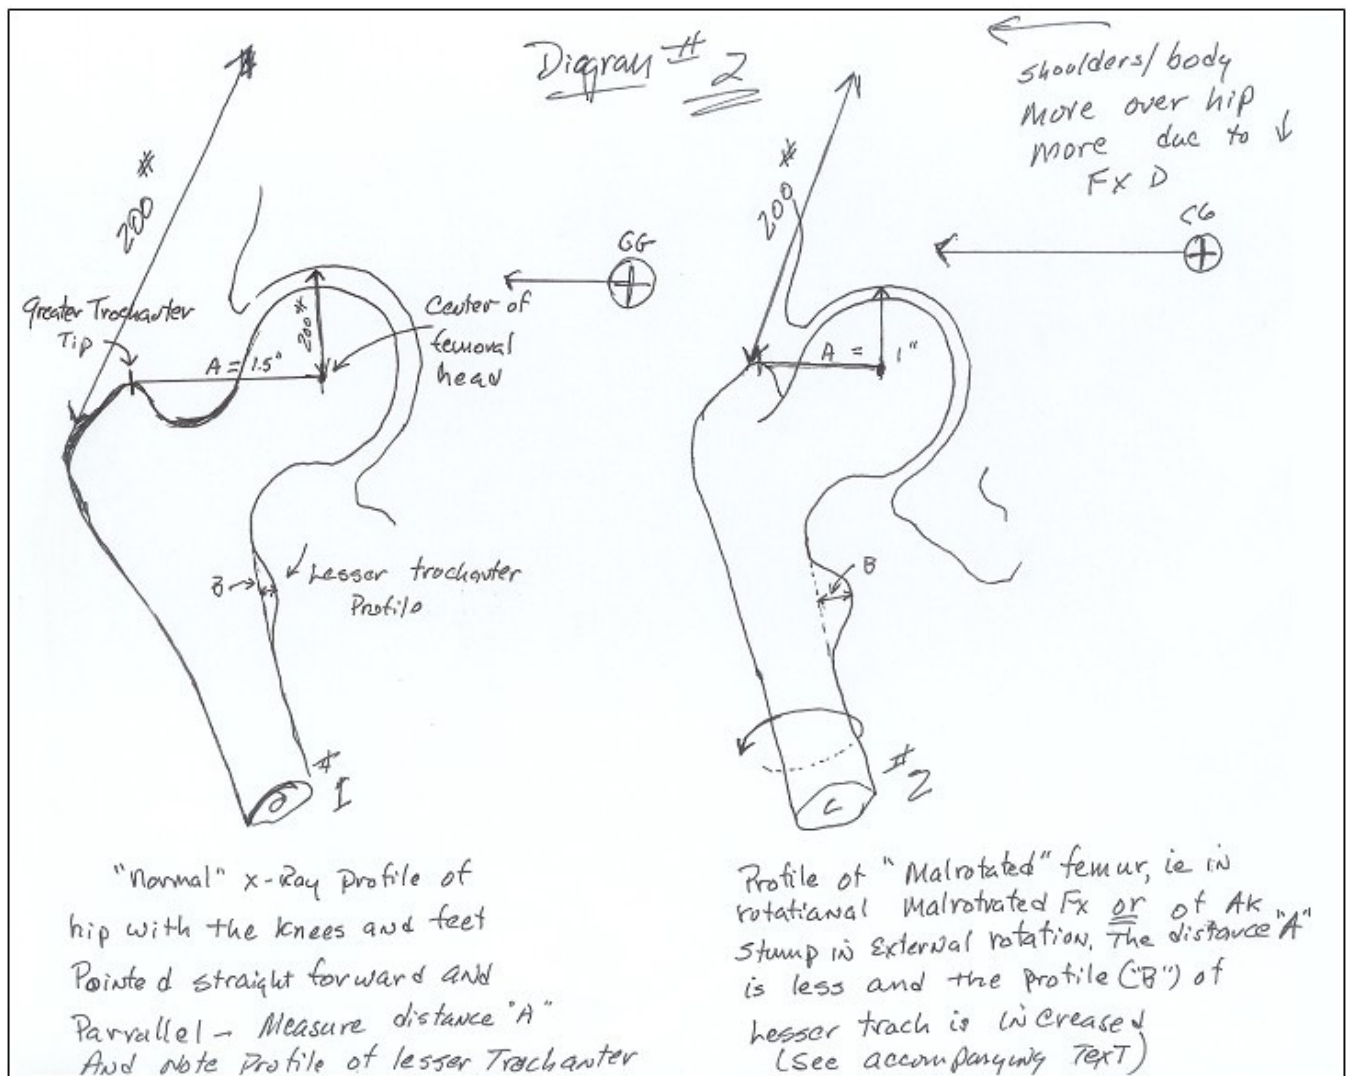 Diagram # 2
shoulders/body
more over hip
more due to ↓
Fx D
200 #
200 #
CG
CG
Greater Trochanter
Tip
A = 1.5"
200 #
Center of
femoral
head
A = 1"
B
Lesser trochanter
Profile
B
# 1
# 2
C
"normal" x-Ray Profile of
hip with the knees and feet
Pointed straight forward and
Parrallel - Measure distance "A"
And note Profile of lesser Trochanter
Profile of "Malrotated" femur, ie in
rotational Malrotrated Fx or of AK
Stump in External rotation. The distance "A"
is less and the profile ("B") of
Lesser troch is increased
(See accompanying Text)